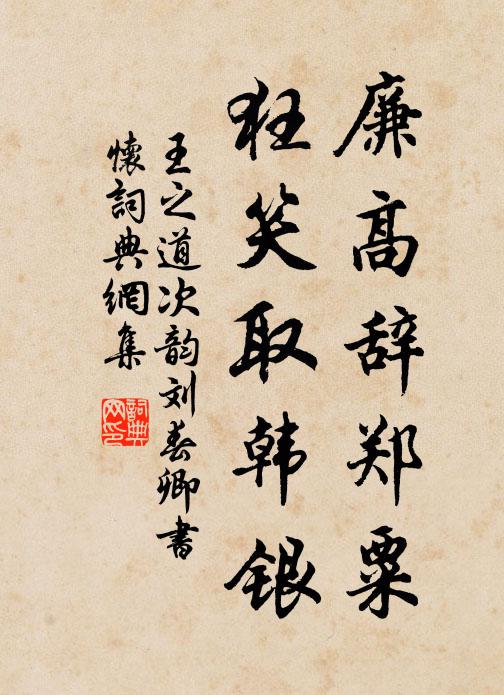 廉高辞郑粟
狂笑取韩银
王之道次韵刘春卿书
懷詞典網集
詞典网印